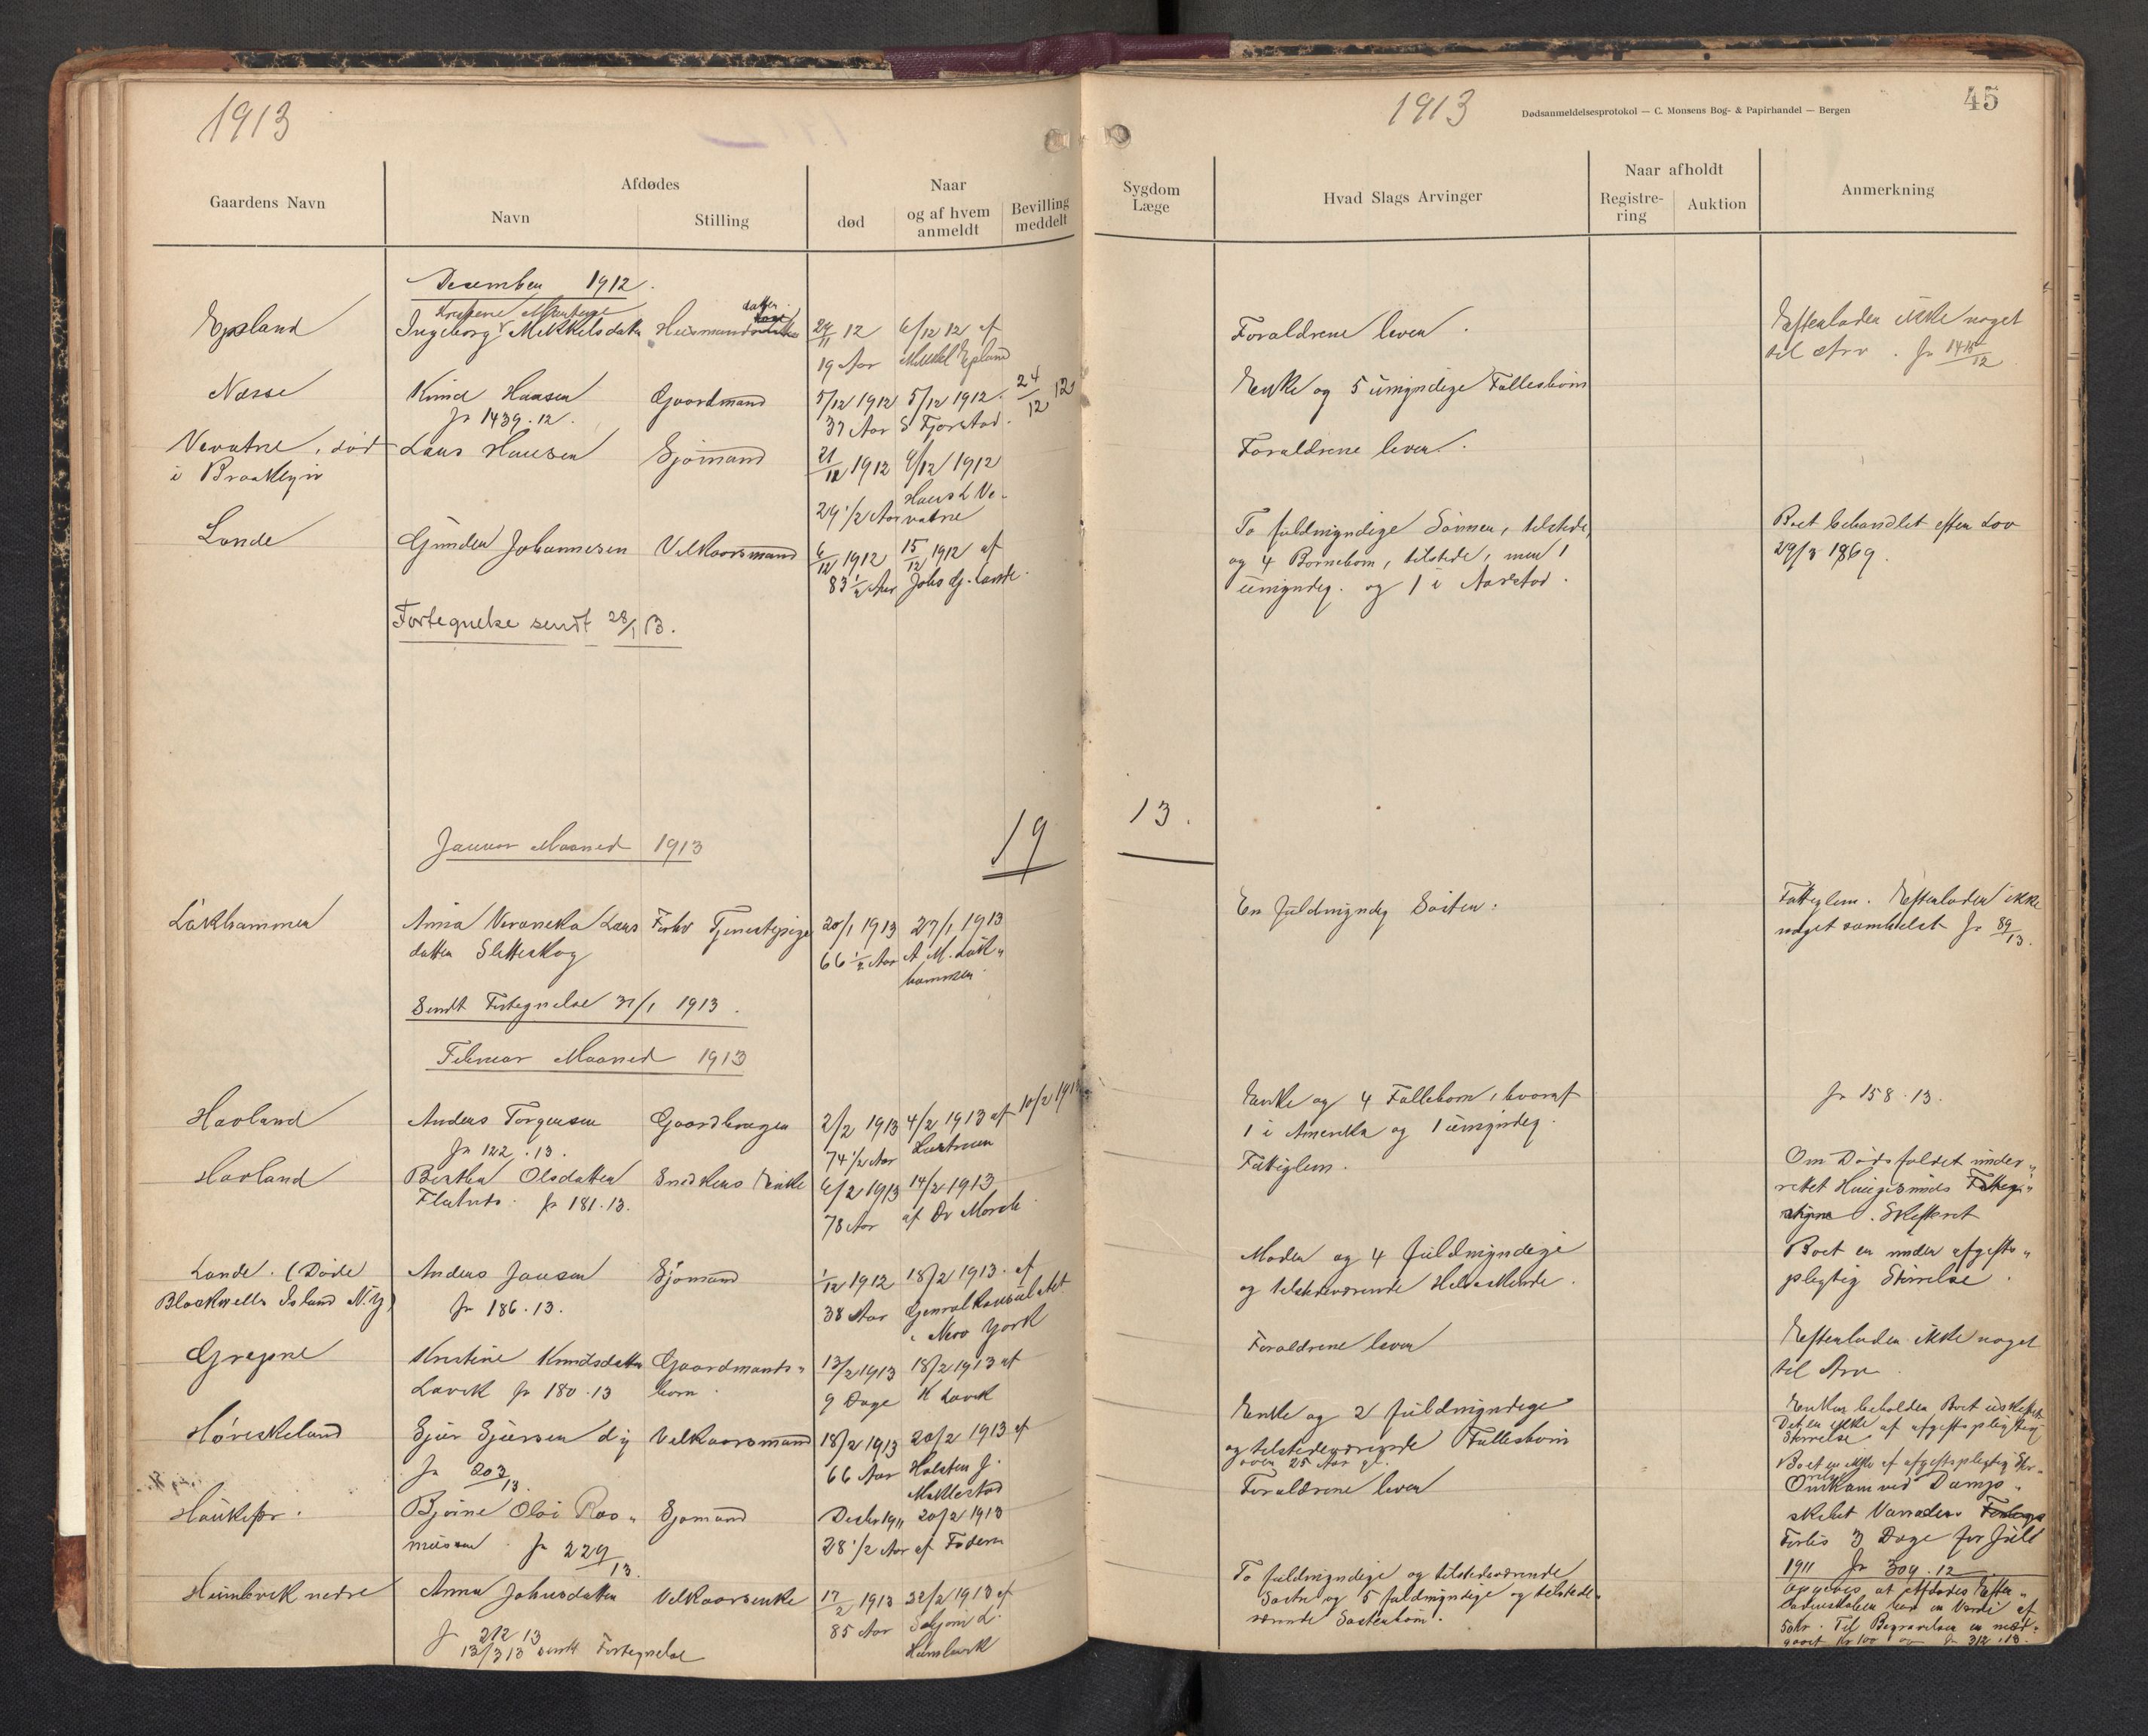 1913
1913
Dødsanmeldelsesprotokol — C. Monsens Bog- & Papirhandel — Bergen
45
Gaardens Navn
Afdødes
Navn
Stilling
Naar
død
og af hvem anmeldt
Bevilling meddelt
Sygdom
Læge
Hvad Slags Arvinger
Naar afholdt
Registre-
ring
Auktion
Anmerkning
December 1912.
Epsland
Ingeborg Mikkelsdatter
datter
19 Aar
6/12 12 af
Mikkel Epsland
Forældrene lever.
Efterlader ikke noget
til Arv. Jr 1415/12
Næsse
Knud Hansen
Jr 1439.12.
Gaardmand
5/12 1912
37 Aar
5/12 1912.
S Fjorstad.
24/12 12
Enke og 5 umyndige Fællesbørn
Vevatne, død
i Brooklyn
Lars Hansen
Sjømand
21/12 1912
29 1/2 Aar
9/12 1912
Hans L Ve-
vatne
Forældrene lever.
Lande
Gunder Johannesen
Velkaarsmand
6/12 1912
83 1/2 Aar
15/12 1912 af
Johs G. Lande
To fuldmyndige Sønner, tilstede,
og 4 Børnebørn, tilstede, men 1
umyndig. og 1 i Aarstad.
Boet behandlet efter Lov
29/3 1869.
Fortegnelse sendt 28/1 13.
Januar Maaned 1913
19
13.
Låkhammer
Anna Veroneka Lars
datter Sletteskog
Forhv Tjenestepige
20/1 1913
66 1/2 Aar
27/1 1913
A M. Låk-
hammer
En fuldmyndig Søster.
Fattiglem. Efterlader ikke
noget somhelst Jr 89/13.
Sendt Fortegnelse 31/1 1913.
Februar Maaned 1913
Havland
Anders Torgersen
Jr 122.13.
Gaardbruger
2/2 1913
74 1/2 Aar
4/2 1913 af
10/2 1913
Enke og 4 Fællebørn, hvoraf
1 i Amerika og 1 umyndig.
Jr 158.13.
Havland
Berthe Olsdatter
Jr 181.13.
Snedkers Enke
6/2 1913
78 Aar
14/2 1913
af Dr
Fattiglem.
Om Dødsfaldet under-
rettet
Skifteret
Lande. (Døde
Blackwells Island N.Y)
Anders Jansen
Jr 186.13.
Sjømand
1/12 1912
38 Aar
18/2 1913. af
Generalkonsulatet
i New York
Moder og 4 fuldmyndige
og tilstedeværende Helsøskende.
Boet er under afgifts-
pligtig Størrelse.
Gregsne
Kristine Knudsdatter
Lavik Jr 180.13
Gaardmands-
barn.
13/2 1913
9 Dage
18/2 1913 af
K Lavik
Forældrene lever
Efterlader ikke noget
til Arv.
Høviskeland
Sjur Sjursen d.y
Jr 203/13.
Velkaarsmand
18/2 1913
66 Aar
20/2 1913 af
Holsten J.
Mæklestad
Enke og 2 fuldmyndige
og tilstedeværende Fællesbørn
over 25 Aar gl.
Enken beholder Boet uskiftet
Det er ikke af afgiftspligtig
Størrelse
Haukefær.
Bjarne Olai Ras-
mussen. Jr 229/13.
Sjømand
Decbr 1911
28 1/2 Aar
20/2 1913
af Faderen
Forældrene lever
Boet er ikke af afgiftspligtig Stør-
relse
Omkom ved Dampo-
skibet
Forlis 3 Dage før Jul
1911 Jr 309.12
Humbvik nedre
Anna Johnsdatter
Jr 212 13
Velkaarsenke
17/2 1913
85 Aar
22/2 1913 af
Humbvik
To fuldmyndige og tilstedeværende
Søstre og 5 fuldmyndige og tilstede-
værende Søsterbørn.
Opgives, at Afdødes Efter-
ladenskaber har en Værdi af
50 kr. Til Begravelsen er med-
gaaet kr 100 Jr 312.13.
13/3 13 sendt Fortegnelse